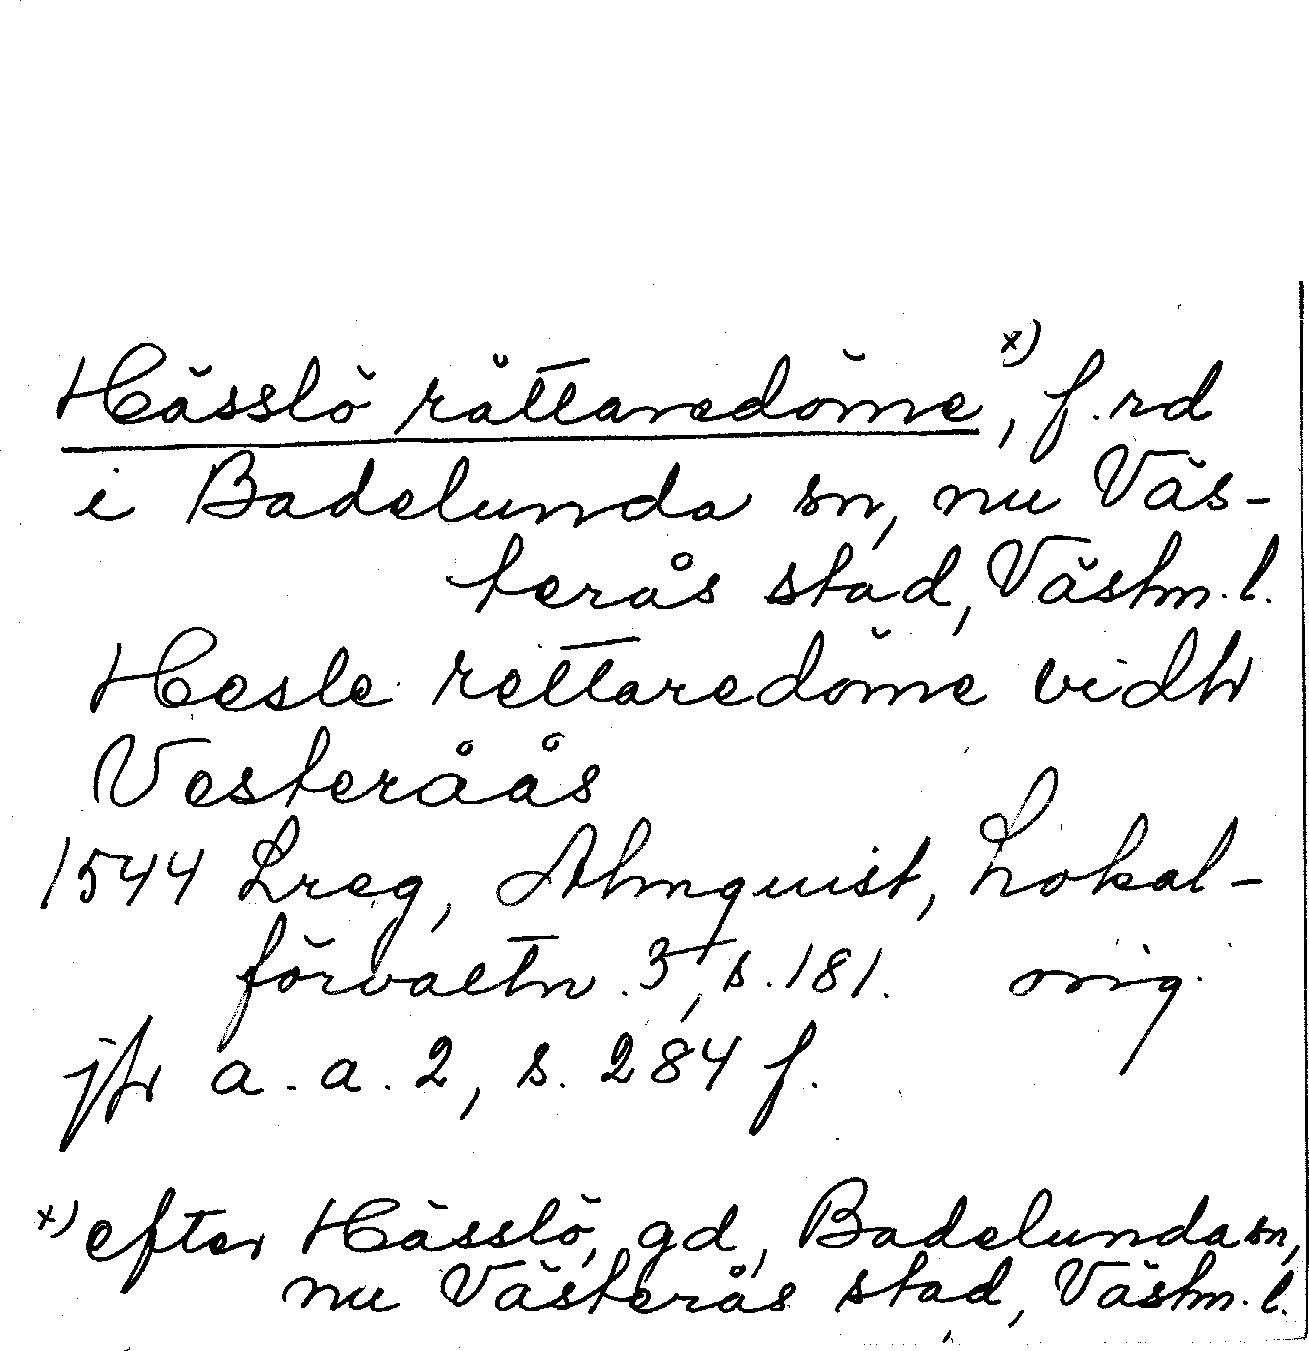 Hässlö rättaredöme x), f.rd
i Badelunda sn, nu Väs-
terås stad, Västm.l.
Hesle rettaredöme vidh
Vesteråås
1544 Lreg, Almquist, Lokal-
förvaltn. 3, s. 181. orig.
jfr a.a. 2, s. 284 f.
x) efter Hässlö, gd, Badelunda sn,
nu Västerås stad, Västm.l.